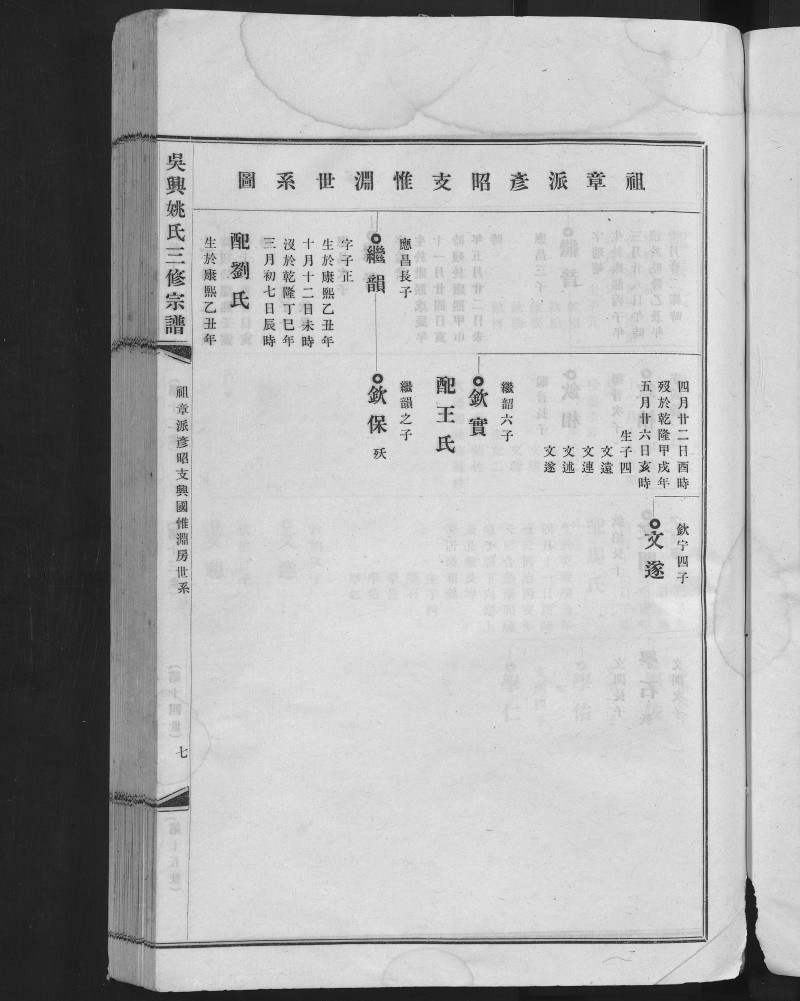 祖章派彥昭支惟淵世系圖
四月廿二日酉時
歿於乾隆甲戌年
五月廿六日亥時
生子四
文遠
文連
文述
文遂
欽宁四子
文遂
繼韶六子
欽實
配王氏
應昌長子
繼韻
字子正
生於康熙乙丑年
十月十二日未時
沒於乾隆丁巳年
三月初七日辰時
配劉氏
生於康熙乙丑年
繼韻之子
欽保 殀
吳興姚氏三修宗譜
祖章派彥昭支興國惟淵房世系
七